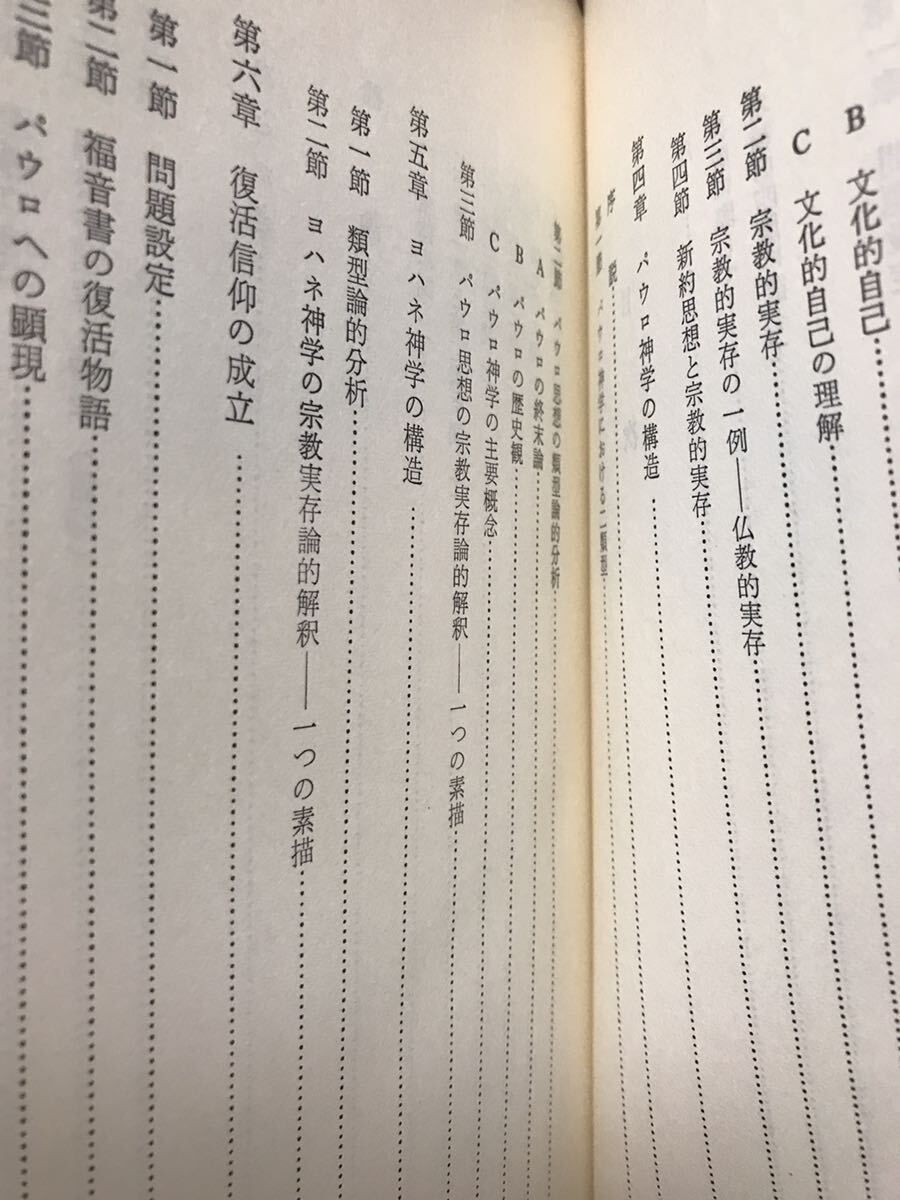 B 文化的自己
C 文化的自己の理解
第二節 宗教的実存
第三節 宗教的実存の一例――仏教的実存
第四節 新約思想と宗教的実存
第四章 パウロ神学の構造
序説
第一節 パウロ神学における二類型
第二節 パウロ思想の類型論的分析
A パウロの終末論
B パウロの歴史観
C パウロ神学の主要概念
第三節 パウロ思想の宗教実存論的解釈――一つの素描
第五章 ヨハネ神学の構造
第一節 類型論的分析
第二節 ヨハネ神学の宗教実存論的解釈――一つの素描
第六章 復活信仰の成立
第一節 問題設定
第二節 福音書の復活物語
三節 パウロへの顕現